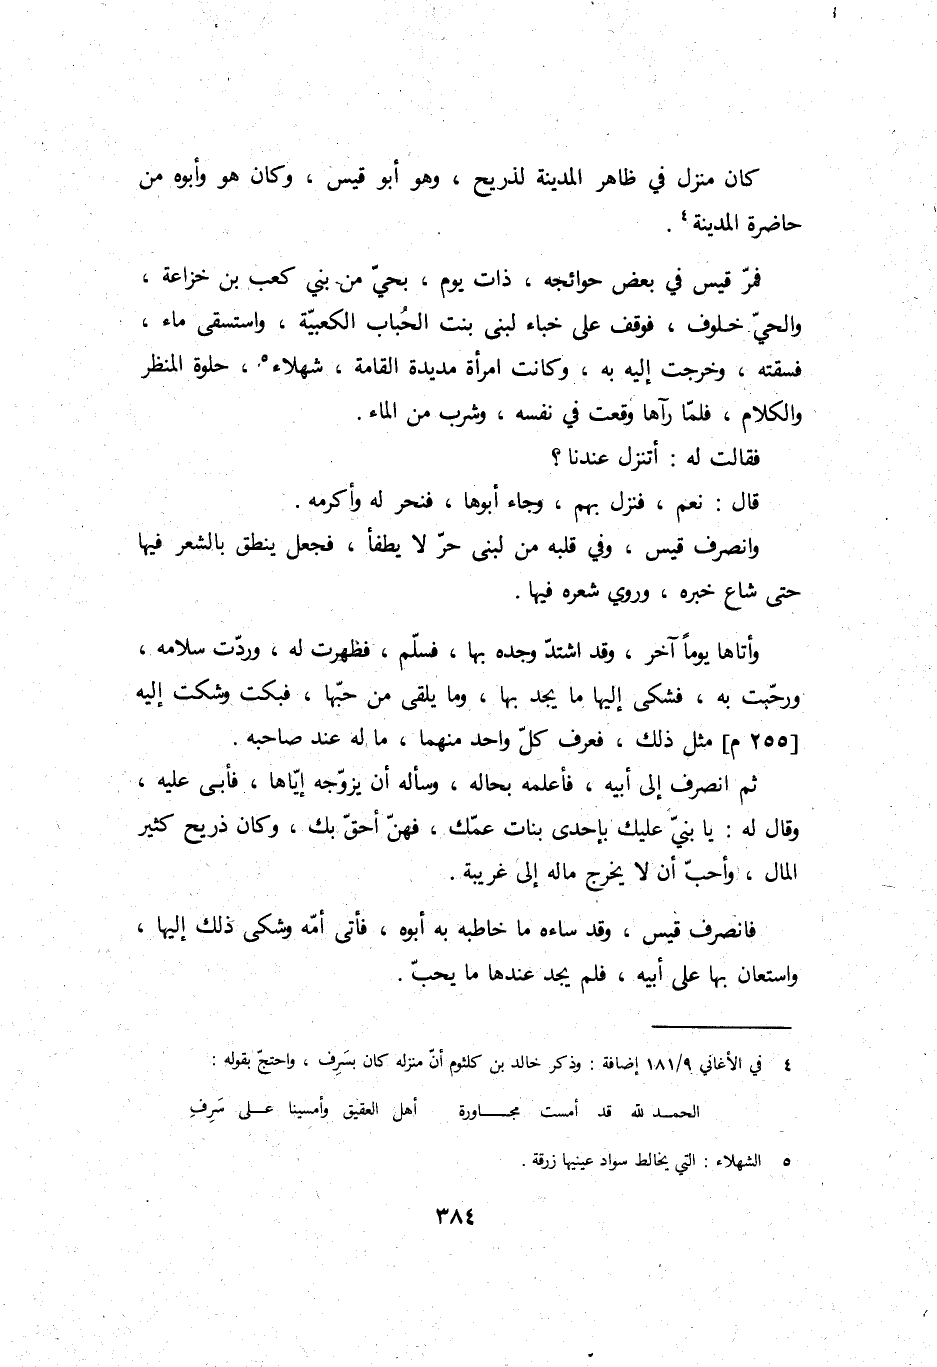 كان منزل في ظاهر المدينة لذريح ، وهو أبو قيس ، وكان هو وأبوه من
حاضرة المدينة ٤ .
فمرّ قيس في بعض حوائجه ، ذات يوم ، بحيّ من بني كعب بن خزاعة ،
والحيّ خلوف ، فوقف على خباء لبنى بنت الحُباب الكعبيّة ، واستسقى ماء ،
فسقته ، وخرجت إليه به ، وكانت امرأة مديدة القامة ، شهلاء ٥ ، حلوة المنظر
والكلام ، فلمّا رآها وقعت في نفسه ، وشرب من الماء .
فقالت له : أتنزل عندنا ؟
قال : نعم ، فنزل بهم ، وجاء أبوها ، فنحر له وأكرمه .
وانصرف قيس ، وفي قلبه من لبنى حرّ لا يطفأ ، فجعل ينطق بالشعر فيها
حتى شاع خبره ، وروي شعره فيها .
وأتاها يوماً آخر ، وقد اشتدّ وجده بها ، فسلّم ، فظهرت له ، وردّت سلامه ،
ورحّبت به ، فشكى إليها ما يجد بها ، وما يلقى من حبّها ، فبكت وشكت إليه
[٢٥٥ م] مثل ذلك ، فعرف كلّ واحد منهما ، ما له عند صاحبه .
ثم انصرف إلى أبيه ، فأعلمه بحاله ، وسأله أن يزوّجه إيّاها ، فأبى عليه ،
وقال له : يا بنيّ عليك بإحدى بنات عمّك ، فهنّ أحقّ بك ، وكان ذريح كثير
المال ، وأحبّ أن لا يخرج ماله إلى غريبة .
فانصرف قيس ، وقد ساءه ما خاطبه به أبوه ، فأتى أمّه وشكى ذلك إليها ،
واستعان بها على أبيه ، فلم يجد عندها ما يحبّ .
٤ في الأغاني ١٨١/٩ إضافة : وذكر خالد بن كلثوم أنّ منزله كان بسَرِف ، واحتجّ بقوله :
الحمد لله قد أمست مجاورة أهل العقيق وأمسينا على سَرِفِ
٥ الشهلاء : التي يخالط سواد عينيها زرقة .
٣٨٤